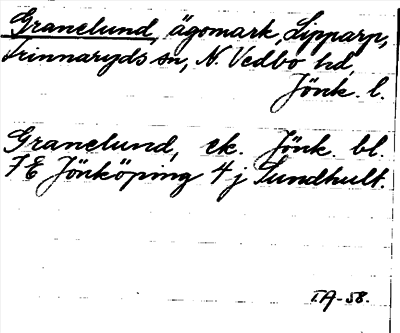 Granelund, ägomark, Lipparp,
Frinnaryds sn, N. Vedbo hd,
Jönk. l.
Granelund, ek. Jönk. bl.
7E Jönköping 4 j Sundhult.
IA-58.